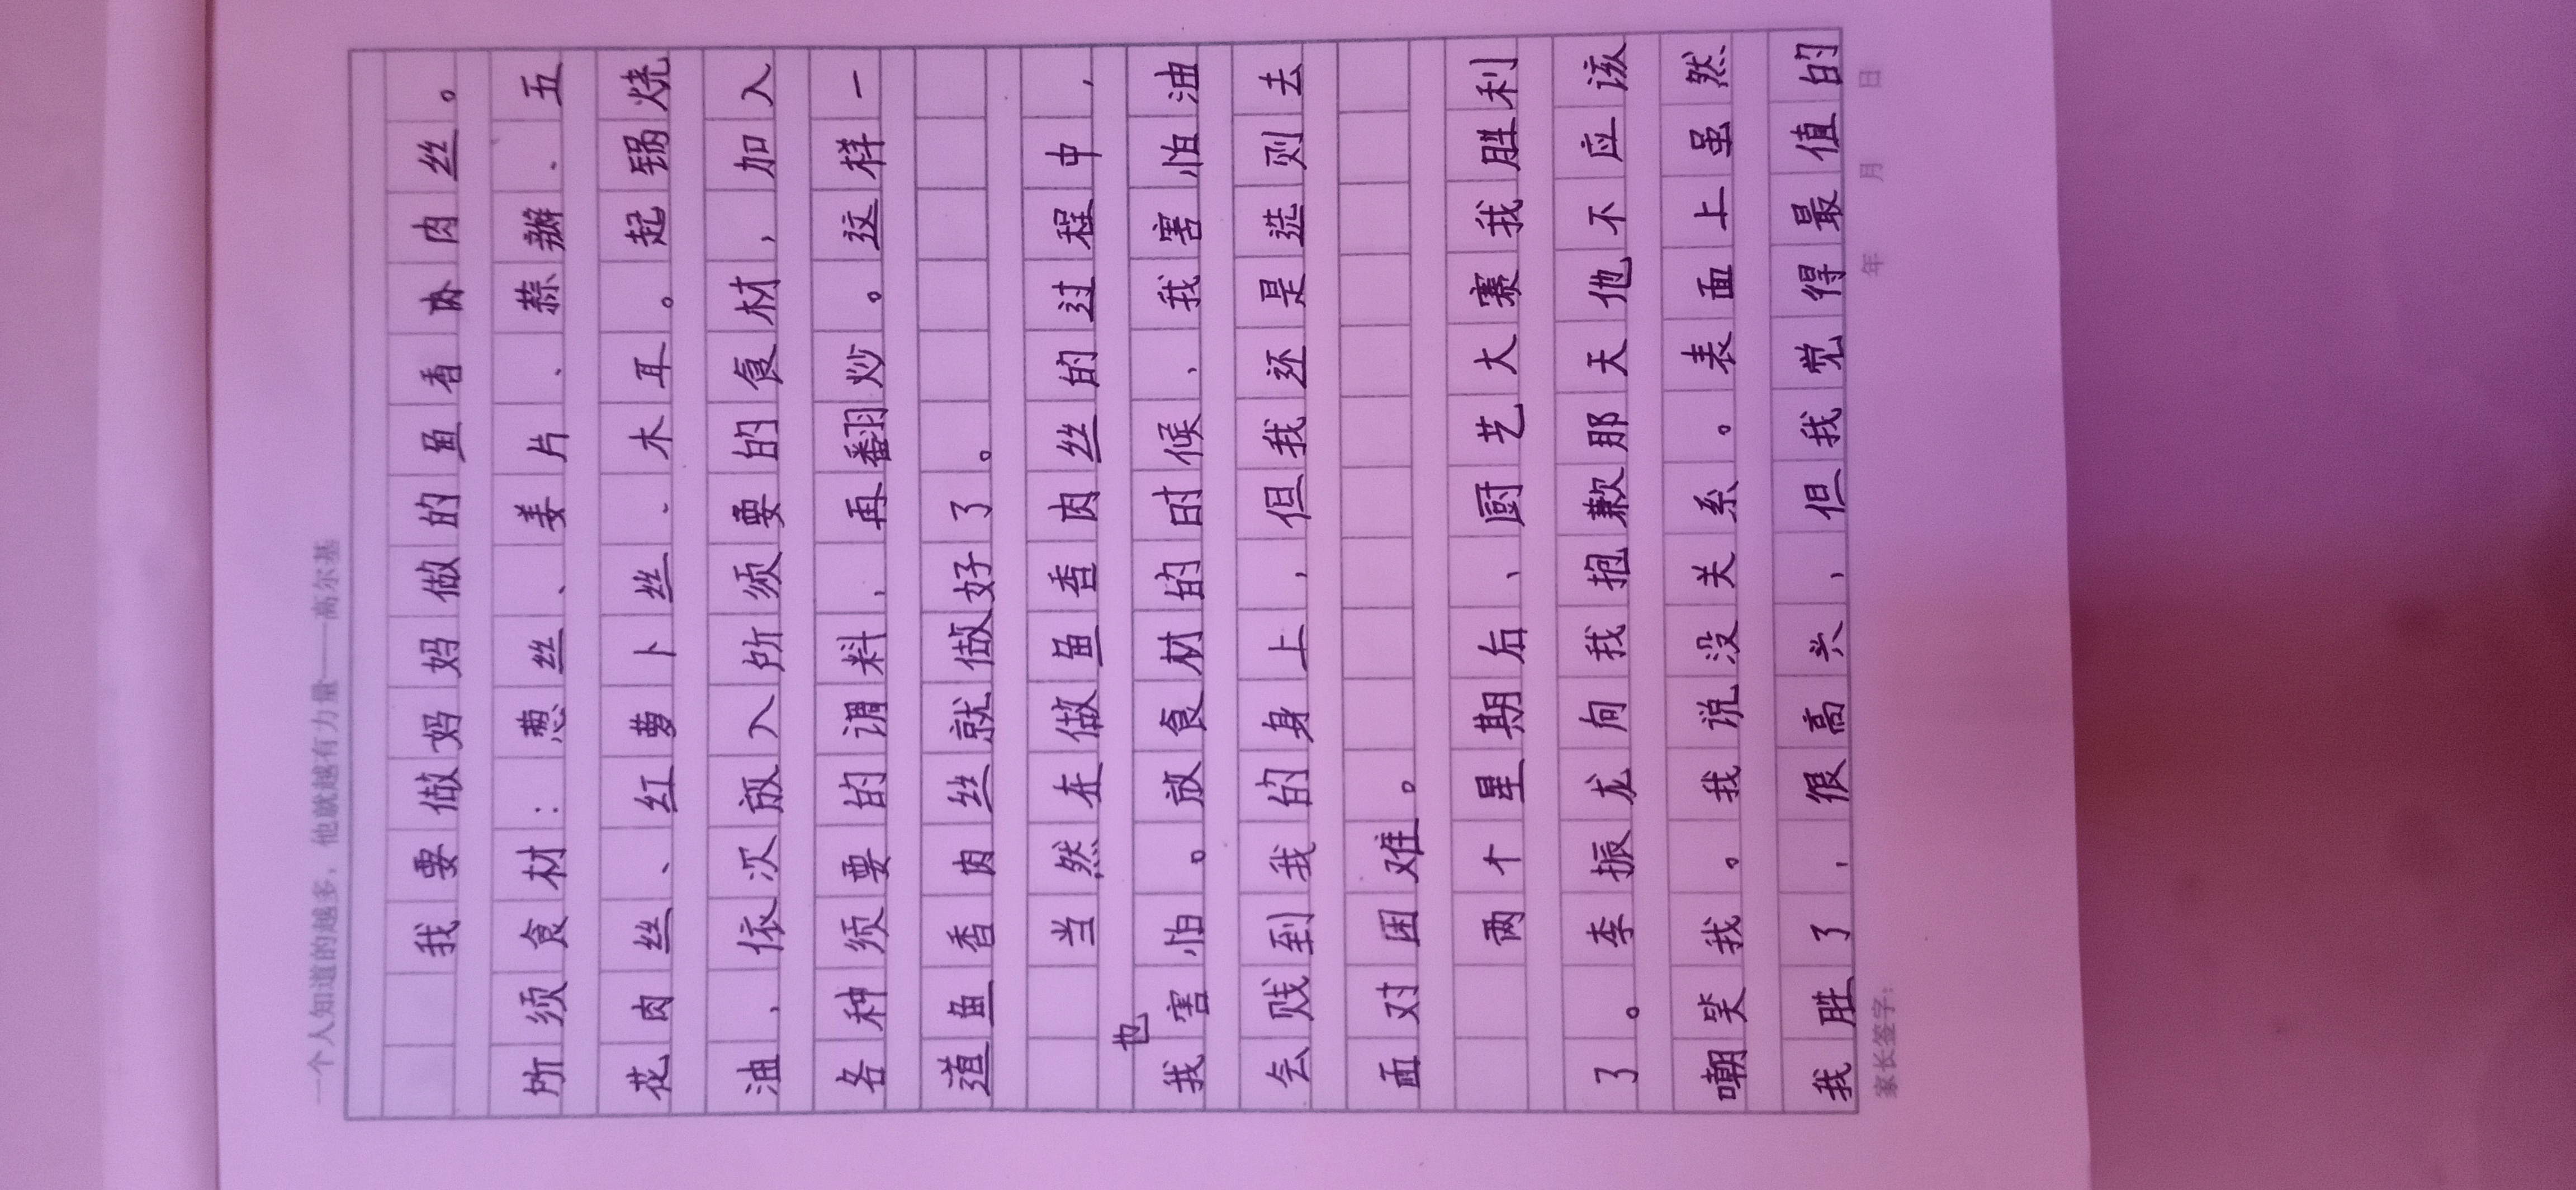 一个人知道的越多，他就越有力量——高尔基
我要做妈妈做的鱼香肉肉丝。
所须食材：葱丝、姜片、蒜瓣、五
花肉丝、红萝卜丝、木耳。起锅烧
油，依次放入所须要的食材，加入
各种须要的调料，再翻炒。这样一
道鱼香肉丝就做好了。
当然在做鱼香肉丝的过程中，
我也害怕。放食材的时候，我害怕油
会贱到我的身上，但我还是选则去
面对困难。
两个星期后、厨艺大赛我胜利
了。李振龙向我抱歉那天他不应该
嘲笑我。我说没关系。表面上虽然
我胜了，很高兴，但我觉得最值的
家长签字： 年 月 日